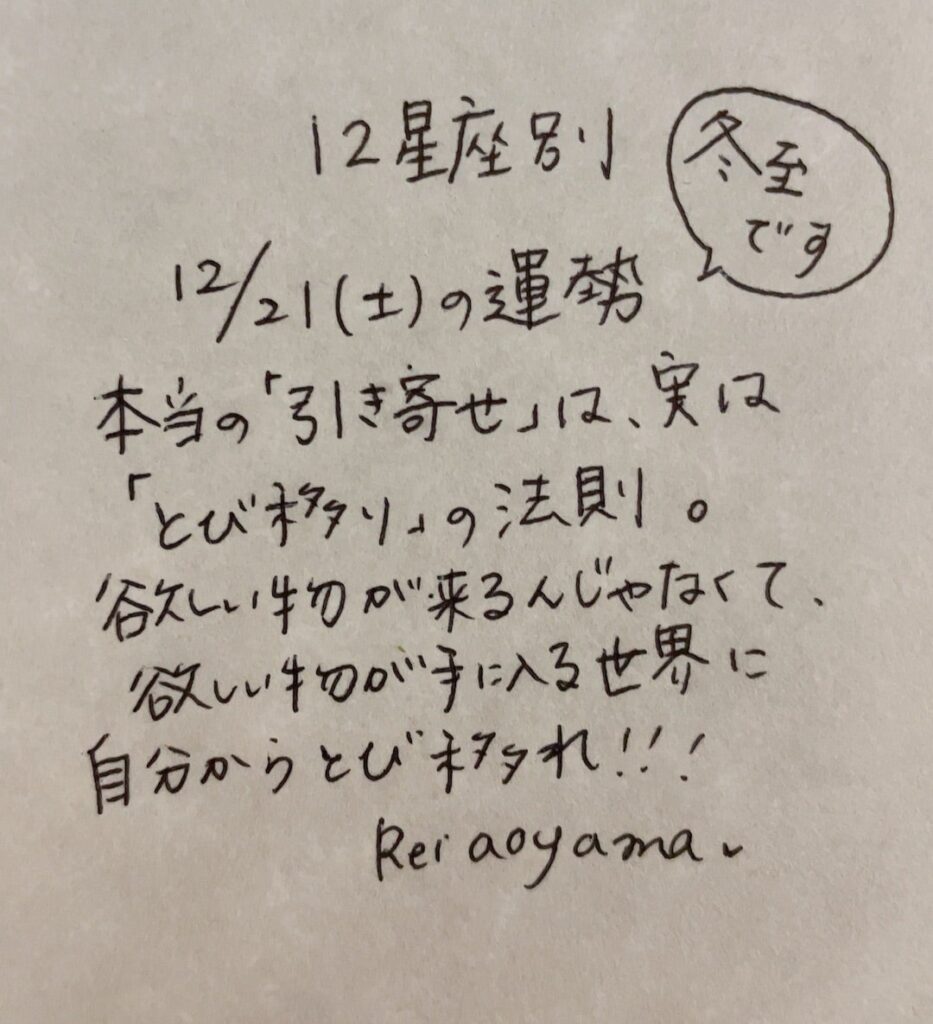 12星座別
冬至
です
12/21(土)の運勢
本当の「引き寄せ」は、実は
「とび移り」の法則。
欲しい物が来るんじゃなくて、
欲しい物が手に入る世界に
自分からとび移れ!!!
Rei aoyama